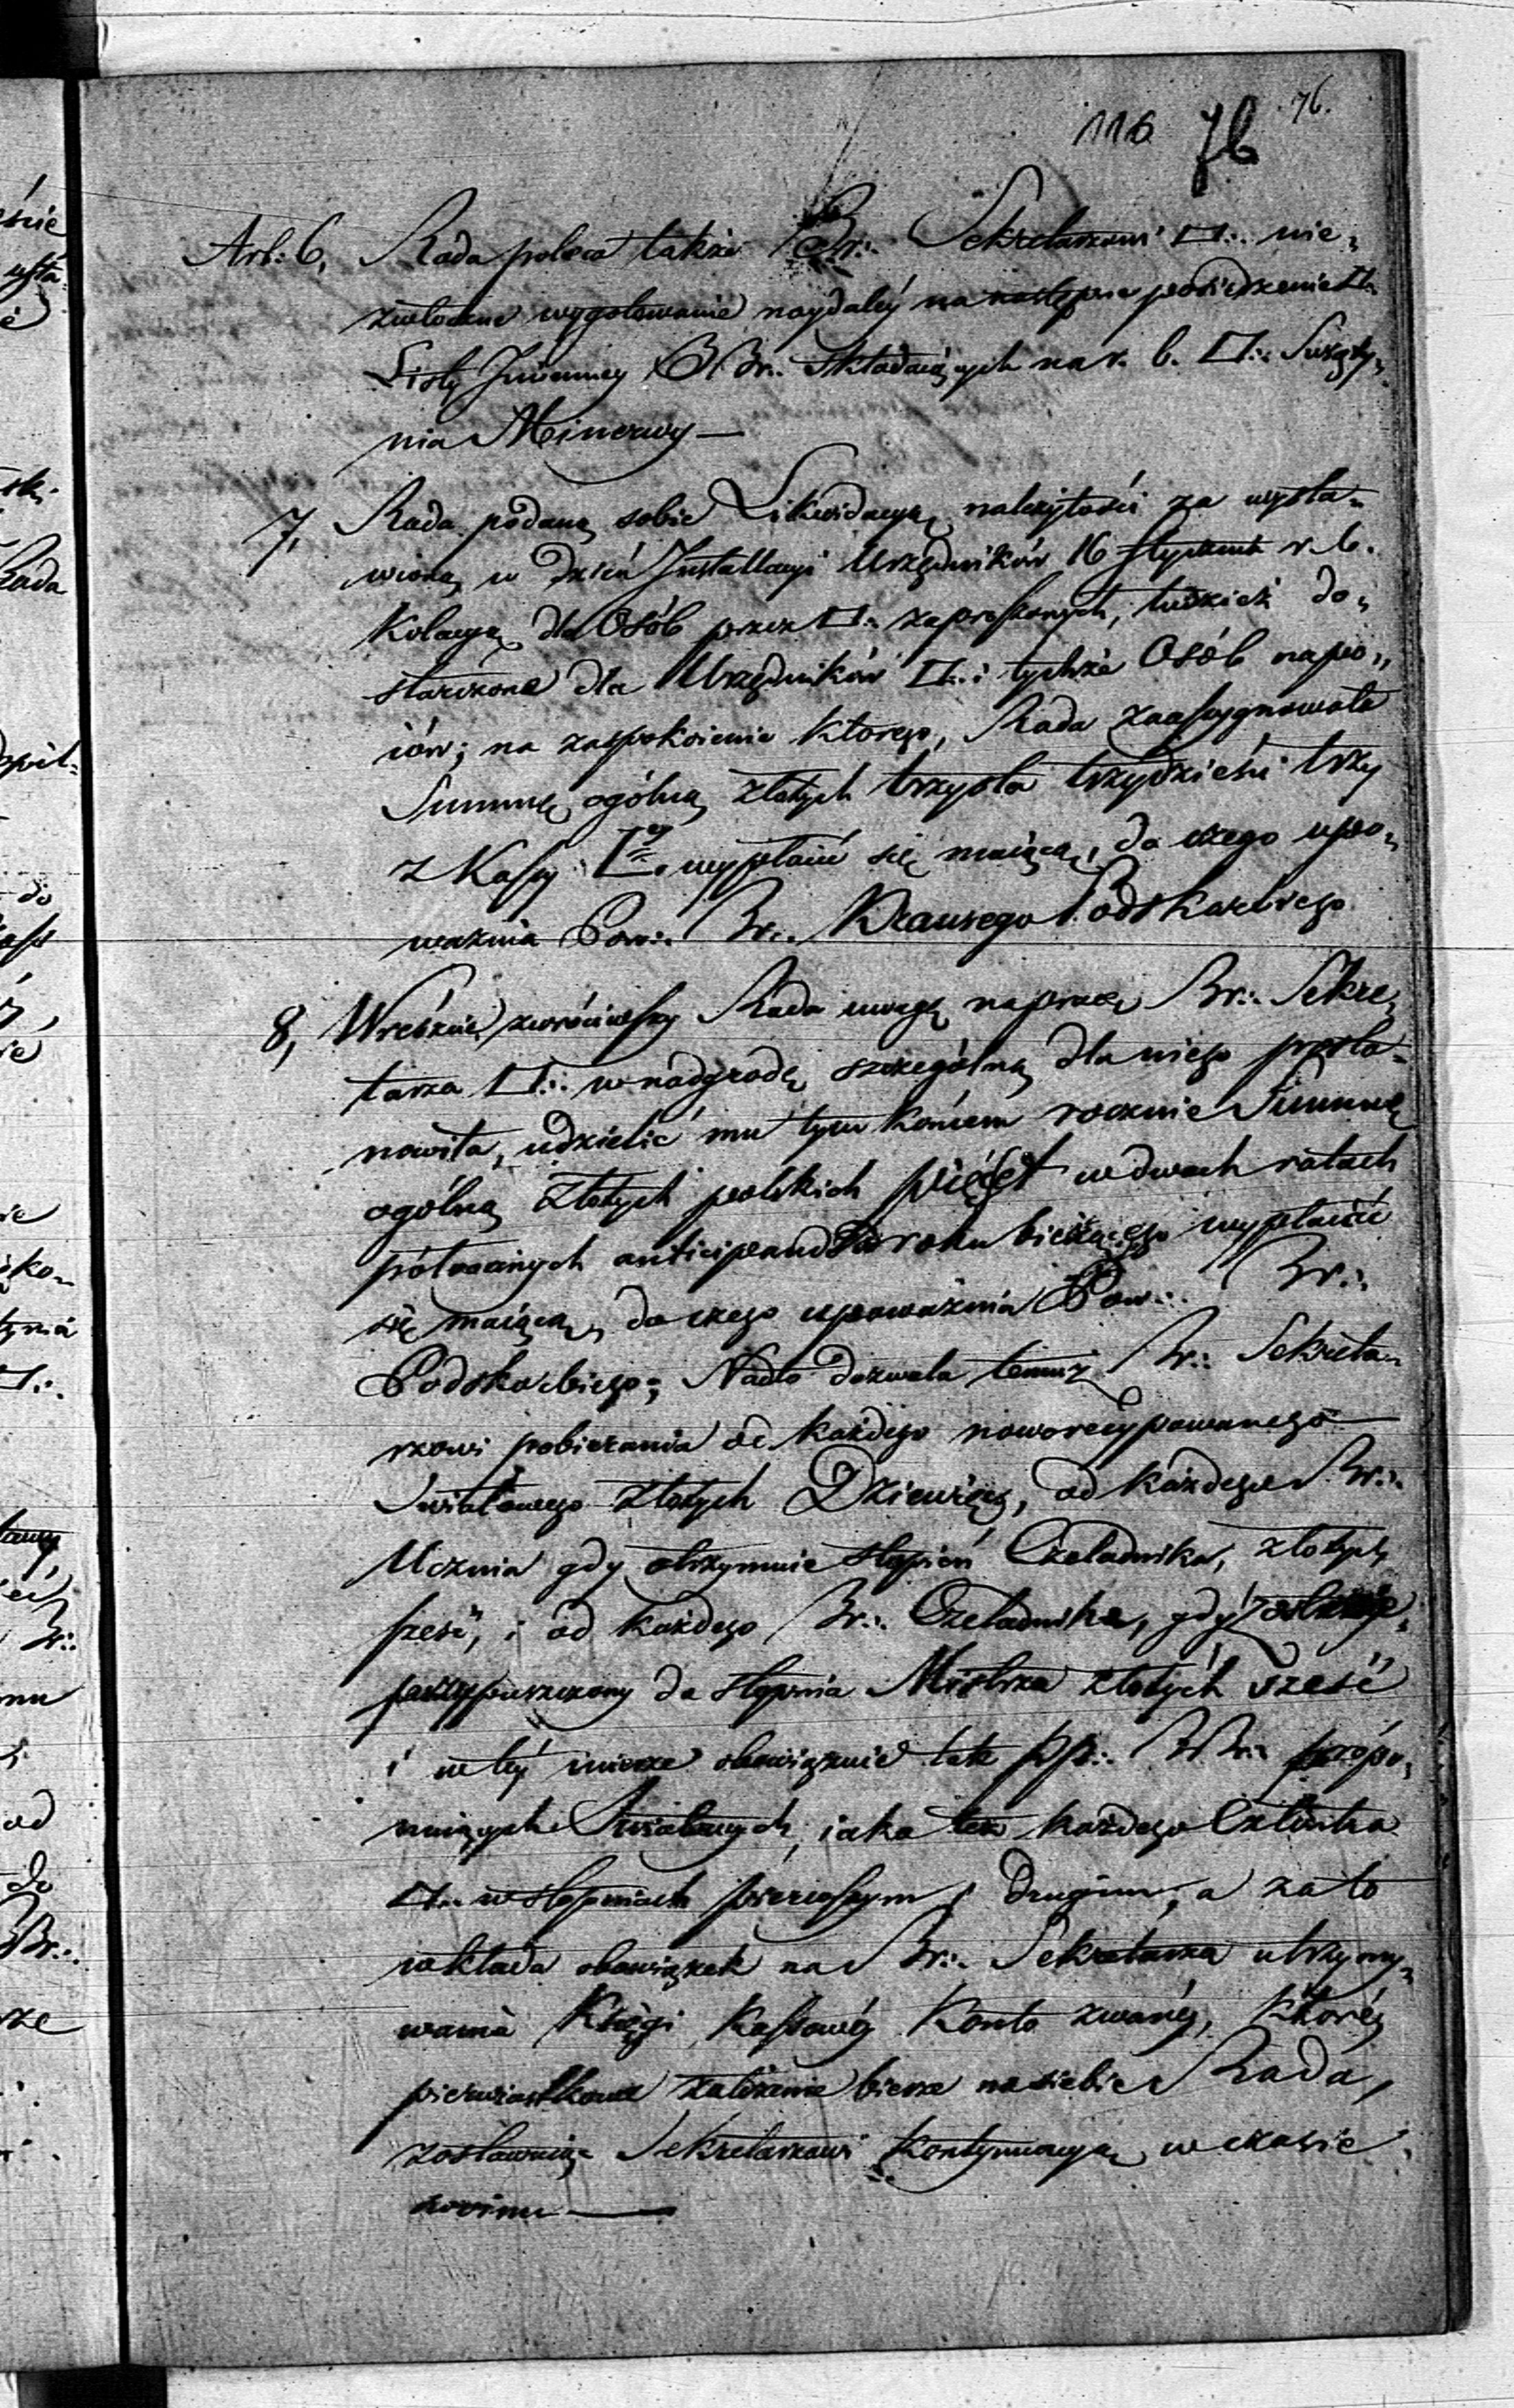 116 76 76.
Art: 6, Rada poleca także Br∴ Sekretarzowi □∴ nie„
zwłoczne wygotowanie naydaléy na następne posiedzenie □∴
Listy Imienney BBr∴ składaiących na r. b. □∴ Swiąty„
nia Minerwy —
7, Rada podaną sobie Likwidacyą należytości za wysta„
wioną w dzień Installacyi Urzędników 16 Stycznia r. b.
Kolacyą dla Osób przez □∴ zaproszonych, tudzież do„
starczone dla Urzędników □∴ i tychże Osób napo„
iów; na zaspokoienie którego, Rada zaassygnowała
Summę ogólną złotych trzysta trzydzieści trzy
z Kassy □∴ey wypłacić się maiącą, do czego upo„
ważnia Pow∴ Br∴ Krausego Podskarbiego
8, Wreśzcie zwróciwszy Rada uwagę na pracę Br∴ Sekre„
tarza □∴ w nadgrodę szczególną dla niego posta„
nowiła, udzielić mu tym końcem rocznie Summę
ogólną złotych polskich pięćset w dwoch ratach
półrocznych anticipando roku bieżącego wypłacić
się maiącą, do czego upoważnia Pow∴ Br∴
Podskarbiego; Nadto dozwala temuż Br∴ Sekreta„
rzowi pobierania od każdego noworecypowanego
Swiatowego złotych Dziewięć, od każdego Br∴
Ucznia gdy otrzymuie stopień Czeladnika, złotych
sześć, i od każdego Br∴ Czeladnika, gdy zostaie
przypuszczony do stopnia Mistrza złotych sześć
i w téy mierze obowiązuie tak pp∴ BBr∴ propo„
nuiących Swiatowych, iako też każdego Członka
□∴ w stopniach pierwszym i drugim, a za to
wkłada obowiązek na Br∴ Sekretarza utrzymy„
wania Księgi Kassowéy Konto zwanéy, któréy
pierwiastkowe założenie bierze na siebie Rada,
zostawuiąc Sekretarzowi kontynuacyą w czasie